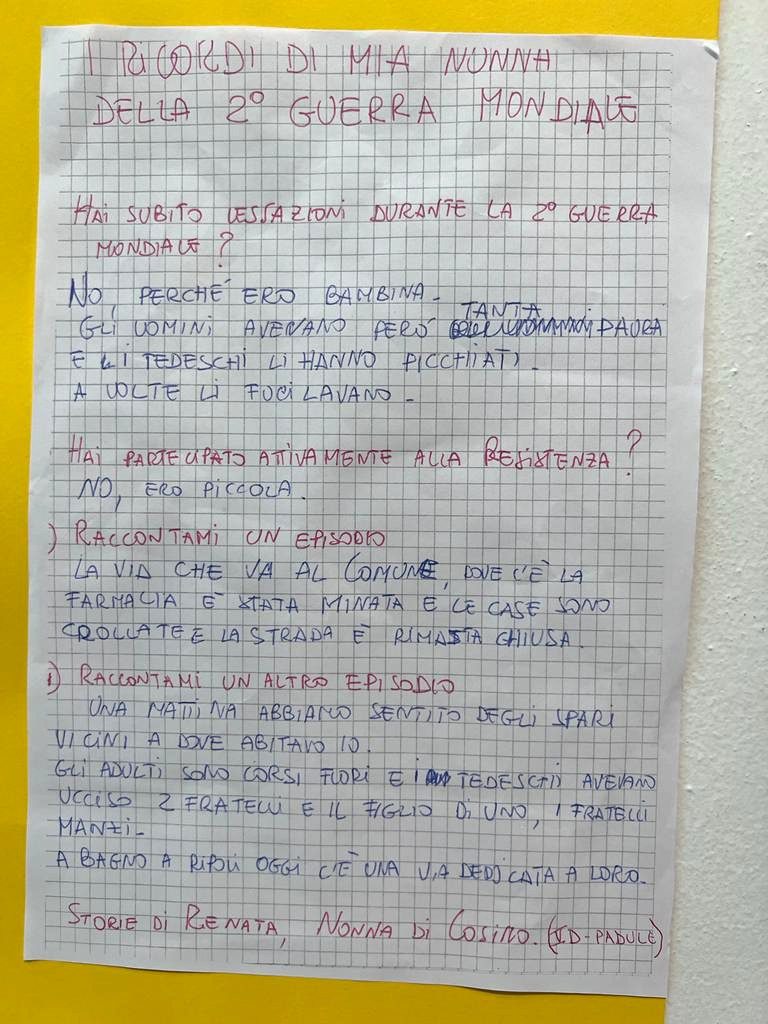 I RICORDI DI MIA NONNA
DELLA 2° GUERRA MONDIALE
HAI SUBITO VESSAZIONI DURANTE LA 2° GUERRA
MONDIALE?
NO, PERCHÉ ERO BAMBINA.
GLI UOMINI AVEVANO PERÒ TANTA PAURA
E LI TEDESCHI LI HANNO PICCHIATI.
A VOLTE LI FUCILAVANO.
HAI PARTECIPATO ATTIVAMENTE ALLA RESISTENZA?
NO, ERO PICCOLA.
) RACCONTAMI UN EPISODIO
LA VIA CHE VA AL COMUNE, DOVE C'È LA
FARMACIA È STATA MINATA E LE CASE SONO
CROLLATE E LA STRADA È RIMASTA CHIUSA.
) RACCONTAMI UN ALTRO EPISODIO
UNA MATTINA ABBIAMO SENTITO DEGLI SPARI
VICINI A DOVE ABITAVO IO.
GLI ADULTI SONO CORSI FUORI E I TEDESCHI AVEVANO
UCCISO 2 FRATELLI E IL FIGLIO DI UNO, I FRATELLI
MANZI.
A BAGNO A RIPOLI OGGI C'È UNA VIA DEDICATA A LORO.
STORIE DI RENATA, NONNA DI COSIMO. (ID-PADULE)